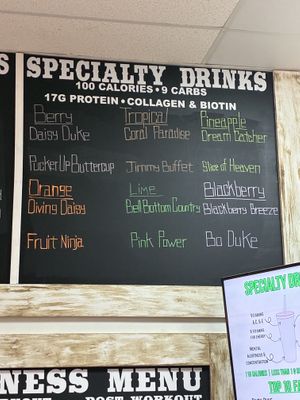 SPECIALTY DRINKS
100 CALORIES • 9 CARBS
17G PROTEIN • COLLAGEN & BIOTIN
Berry
Daisy Duke
Pucker Up Buttercup
Orange
Diving Daisy
Fruit Ninja
Tropical
Coral Paradise
Jimmy Buffet
Lime
Bell Bottom Country
Pink Power
Pineapple
Dream Catcher
Slice of Heaven
Blackberry
Blackberry Breeze
Bo Duke
SPECIALTY DR
VITAMINS
MENTAL
NESS MENU
POST WORKOUT
TOP 10 FA